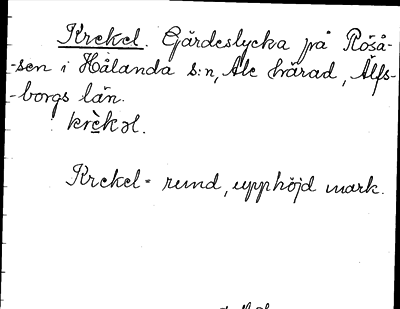 Krekel. Gärdeslycka på Röså-
-sen i Hålanda s:n, Ale härad, Älfs-
-borgs län.
krèkəl.
Krekel = rund, upphöjd mark.